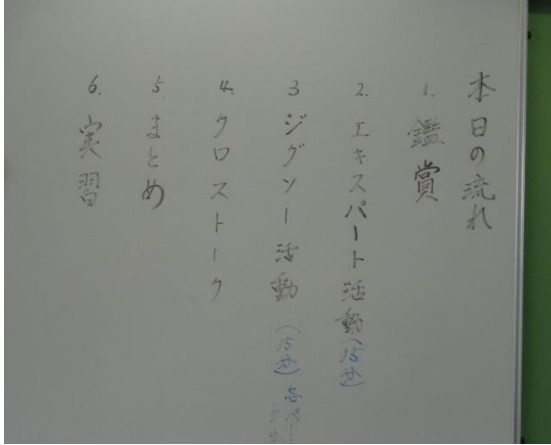 本日の流れ
1. 鑑賞
2. エキスパート活動（15分）
3 ジグソー活動（15分）
4. クロストーク
5. まとめ
6. 実習